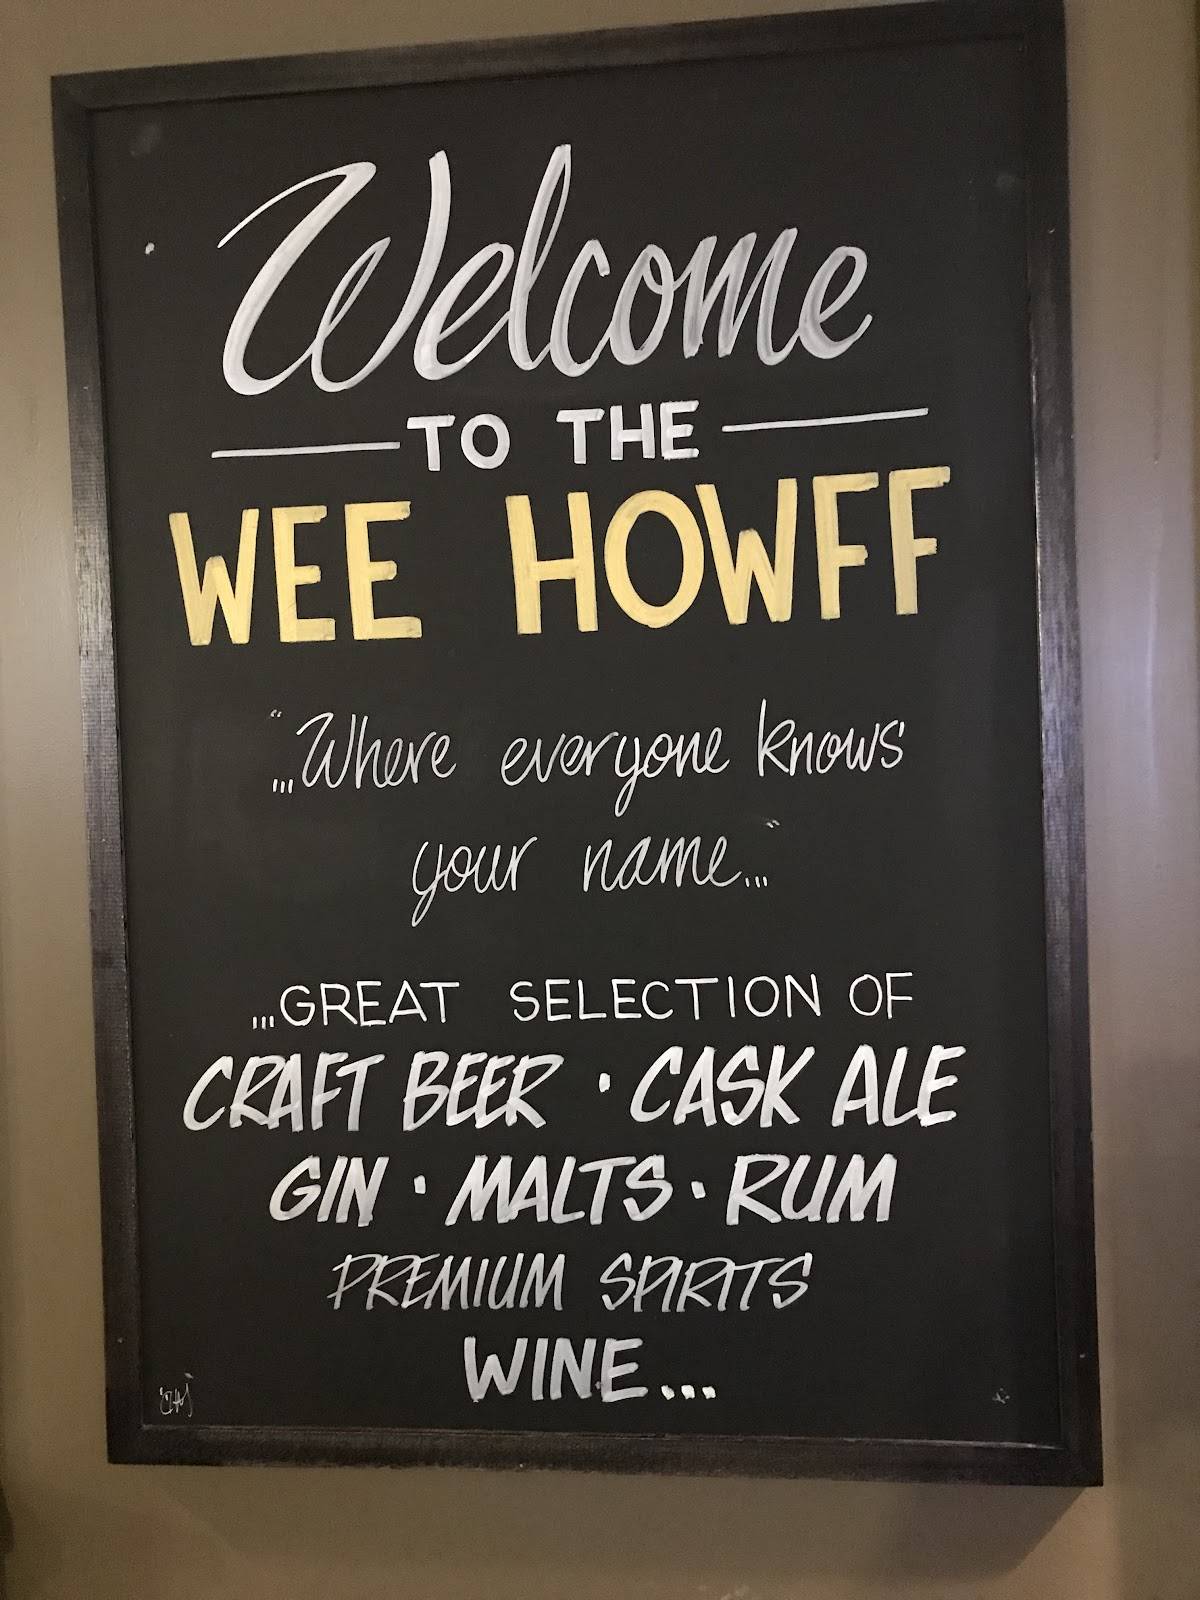 Welcome
TO THE
WEE HOWFF
"...Where everyone knows
your name..."
...GREAT SELECTION OF
CRAFT BEER · CASK ALE
GIN · MALTS · RUM
PREMIUM SPIRITS
WINE...